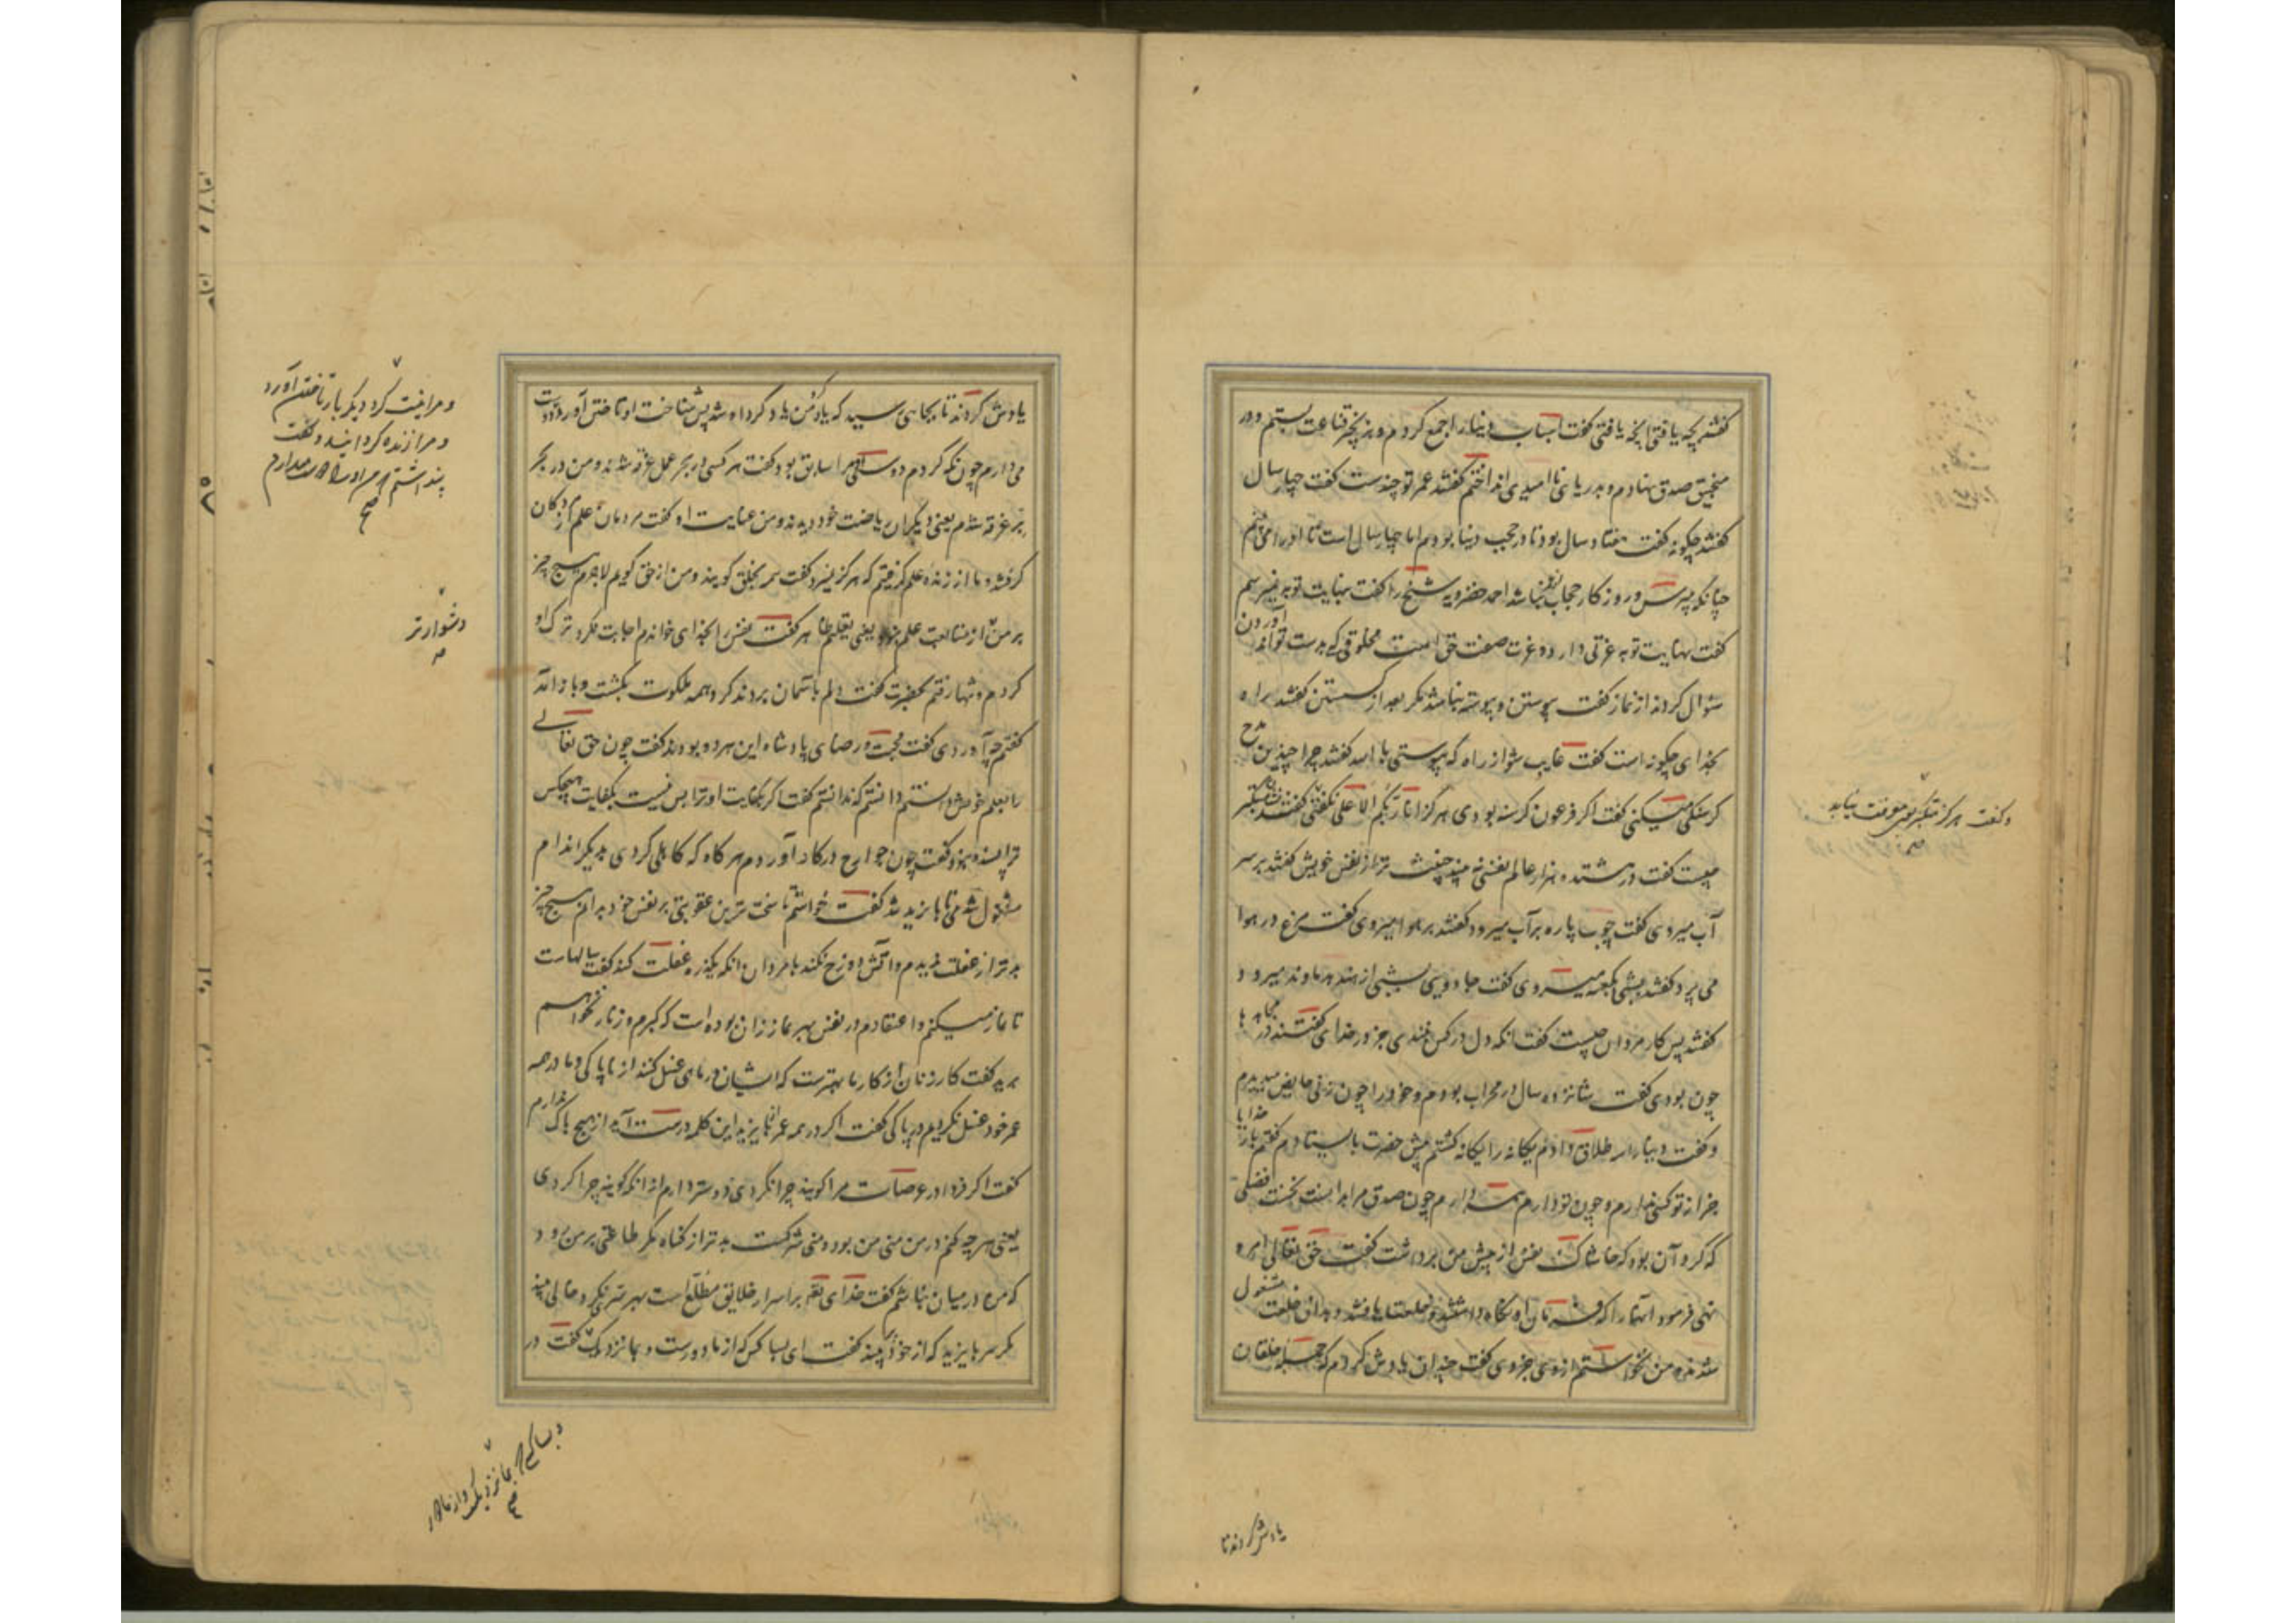 گفتند بچه یافتی آنچه یافتی گفت اسباب دنیا را جمع کردم و بزنجیر قناعت بستم و در
منجنیق صدق نهادم و بدریای ناامیدی انداختم گفتند عمر تو چندست گفت چهار سال
گفتند چگونه گفت هفتاد سال بود تا در حجب دنیا بودم اما چهار سال است تا او را می‌بینم
چنانکه مپرس و روزگار حجاب از عمر نباشد احمد خضرویه شیخ را گفت بنهایت توبه نمیرسم
گفت نهایت توبه عزتی دارد و عزت صفت حق است مخلوقی کی بدست تواند آوردن
سؤال کردند از نماز گفت پیوستن و پیوسته نباشد مگر بعد از گسستن گفتند راه
بخدای چگونه است گفت غایب شو از راه که پیوستی بالله گفتند چرا چندین مدح
گرسنگی میکنی گفت اگر فرعون گرسنه بودی هرگز انا ربکم الاعلی نگفتی گفتند متکبر
کیست گفت در هشتده هزار عالم نفسی نه بیند خبیث‌تر از نفس خویش گفتند بر سر
آب میروی گفت چوب پاره بر آب میرود گفتند بر هوا میروی گفت مرغ در هوا
می پرد گفتند بشبی بکعبه میروی گفت جادویی بشبی از هند بدماوند میرود
گفتند پس کار مردان چیست گفت آنکه دل در کس نبندی جز در خدای گفتند در مجاهدها
چون بودی گفت شانزده سال در محراب بودم و خود را چون زنی حایض میدیدم
و گفت دنیا را سه طلاق دادم و یگانه را یگانه گشتم پیش حضرت بایستادم گفتم بار خدایا
جز از تو کسی ندارم و چون تو دارم همه دارم چون صدق مرا بدانست نخست فضلی
که کرد آن بود که خاشاک نفس از پیش من برداشت گفت حق تعالی امر و
نهی فرمود آنها را که فرمان او نگاه داشتند خلعتها یافتند و بدان خلعت مشغول
شدند و من نخواستم از وی جز وی گفت چندان یادش کردم که جمله خلقان
و گفت هرگز متکبر بوی معرفت نیابد
صح
یادش کردند تا
یادش کردند تا بجایی رسید که یاد من یاد کرد او شد پس شناخت او تاختن آورد دوست
می دارم چون نگه کردم دوستی او مرا سابق بود گفت هر کسی در بحر عمل غرقه شدند و من در بحر
بر غرقه شدم یعنی دیگران ریاضت خود دیدند و من عنایت او گفت مردمان علم از مردگان
گرفتند و ما از زنده علم گرفتیم که هرگز نمیرد گفت همه بخلق گویند و من از حق گویم لاجرم هیچ چیز
بر من از متابعت علم نبود یعنی تعلیم ظاهر گفت نفس را بخدای خواندم اجابت نکرد ترک او
کردم و تنها رفتم بحضرت گفت دلم بآسمان بردند گرد همه ملکوت بگشت و باز آمد
گفتم چه آوردی گفت محبت و رضا که پادشاه این هر دو بودند گفت چون حق تعالی
را بعلم خویش دانستم گفت اگر بکفایت او ترا بس نیست بکفایت هیچکس
ترا بسنده نبود گفت چون جوارح در کار آوردم هر گاه که کاهلی کردی بدیگر اندام
مشغول شدمی تا بایزید شد گفت خواستم تا سخت ترین عقوبتی بر نفس خود بدانم هیچ چیز
بدتر از غفلت ندیدم و آتش دوزخ نکند با مردان آنکه یکذره غفلت کند گفت سالهاست
تا نماز میکنم و اعتقادم در نفس بهر نماز آن بوده است که گبرم و زنار بخواهم
برید گفت کار زنان از کار ما بهترست که ایشان در ماهی غسل کنند از ناپاکی و ما در همه
عمر خود غسل نکردیم در پاکی گفت اگر در همه عمر از بایزید این کلمه درست آید از هیچ باک ندارم
گفت اگر فردا در عرصات مرا گویند چرا نکردی دوستر دارم از آنکه گویند چرا کردی
یعنی هر چه کنم در من منی من بود و منی شرکست بدتر از گناه مگر طاعتی بر من رود
که من در میان نباشم گفت خدای تع بر اسرار خلایق مطلع است بهر سر که نگرد خالی بیند
مگر سر بایزید که از خود پر بیند گفت ای بسا کس که از ما دورست و بما نزدیک گفت در
و مرا نیست کرد دیگر بار تاختن آورد
و مرا زنده گردانید و گفت
پنداشتم که من او را دوست میدارم
صح
دشوارتر
و بسا کس که بما نزدیک و از ما دور
صح